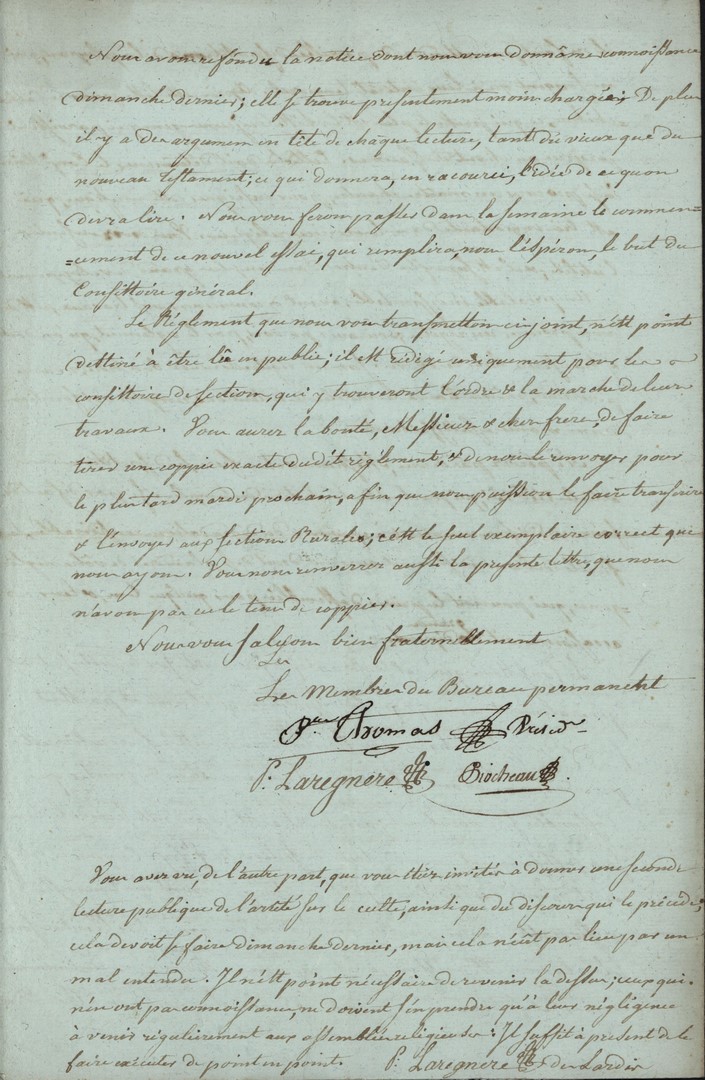 Nous avons refondu la notice dont nous vous donnâmes connoissance
dimanche dernier; elle se trouve presentement moins chargée; De plus
il y a des argumens en tête de chaque lecture, tant du vieux que du
nouveau testament; ce qui donnera, en racourci, l'idée de ce qu'on
devra lire. Nous vous ferons passer dans la semaine le commen-
=cement de ce nouvel essai, qui remplira, nous l'éspérons, le but du
Consistoire général.
Le Réglement que nous vous transmettons ci-joint, n'est point
destiné à être lû en public; il est rédigé uniquement pour les
consistoires de sections, qui y trouveront l'ordre & la marche de leurs
travaux. Vous aurez la bonté, Messieurs & chers freres, de faire
tirer une coppie exacte dudit réglement, & de nous le renvoyer pour
le plus tard mardi prochain, afin que nous puissions le faire transcrire
& l'envoyer aux sections Rurales; c'est le seul exemplaire correct que
nous ayons. Vous nous renverrez aussi la presente lettre, que nous
n'avons pas eu le tems de coppier.
Nous vous saluons bien fraternellement
Les
Les Membres du Bureau permanent
Thomas Présid
P. Laregnère Piocheau.
Vous avez vu, de l'autre part, que vous étiez invités à donner une seconde
lecture publique de l'arrêté sur le culte, ainsi que du discours qui le précéde;
cela devoit se faire dimanche dernier, mais cela n'eût pas lieu par un
mal entendu. Il n'est point nécessaire de revenir la dessus; ceux qui
n'en ont pas connoissance, ne doivent s'en prendre qu'à leur négligence
à venir régulierement aux assemblées religieuses. Il suffit à present de le
faire exécuter de point en point. P. Laregnère